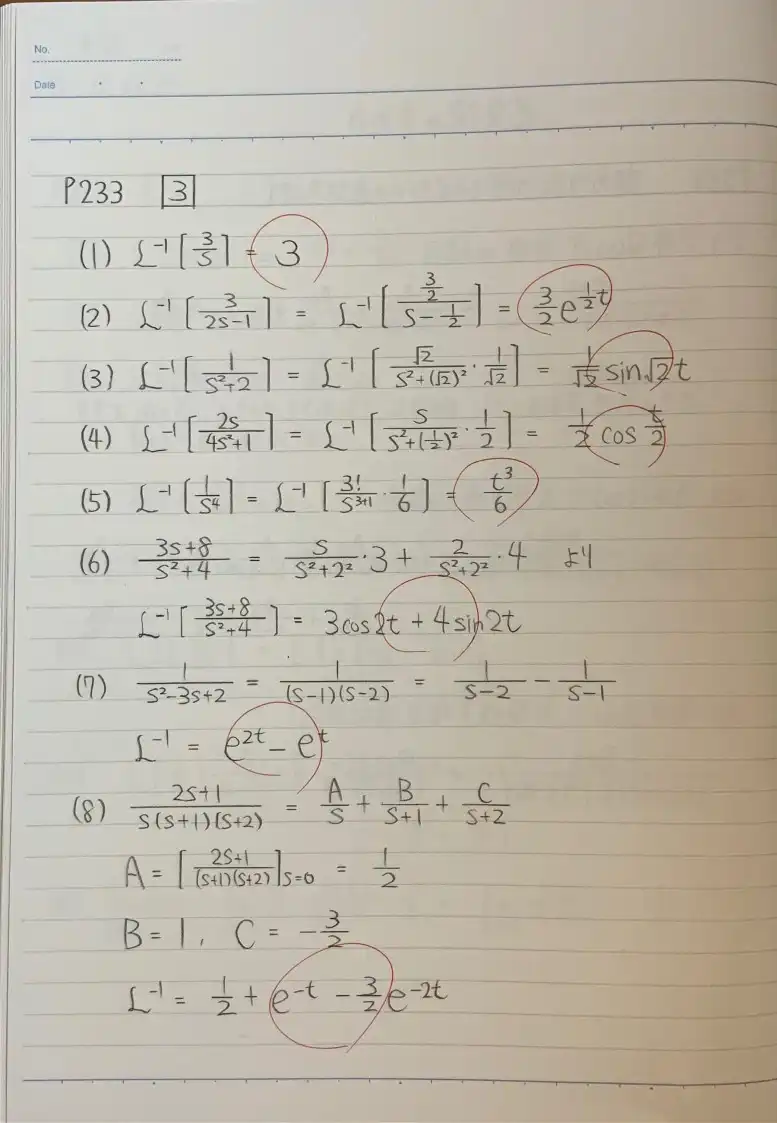 No.
Date
P233 3
(1) L⁻¹[3/S] = 3
(2) L⁻¹[3/(2S-1)] = L⁻¹[(3/2)/(S-1/2)] = 3/2 e^(1/2 t)
(3) L⁻¹[1/(S²+2)] = L⁻¹[√2/(S²+(√2)²)・1/√2] = 1/√2 sin√2t
(4) L⁻¹[2S/(4S²+1)] = L⁻¹[S/(S²+(1/2)²)・1/2] = 1/2 cos t/2
(5) L⁻¹[1/S⁴] = L⁻¹[3!/S^(3+1)・1/6] = t³/6
(6) (3S+8)/(S²+4) = S/(S²+2²)・3 + 2/(S²+2²)・4 より
L⁻¹[(3S+8)/(S²+4)] = 3cos2t + 4sin2t
(7) 1/(S²-3S+2) = 1/((S-1)(S-2)) = 1/(S-2) - 1/(S-1)
L⁻¹ = e^(2t) - e^t
(8) (2S+1)/(S(S+1)(S+2)) = A/S + B/(S+1) + C/(S+2)
A = [(2S+1)/((S+1)(S+2))]S=0 = 1/2
B = 1, C = -3/2
L⁻¹ = 1/2 + e^(-t) - 3/2 e^(-2t)